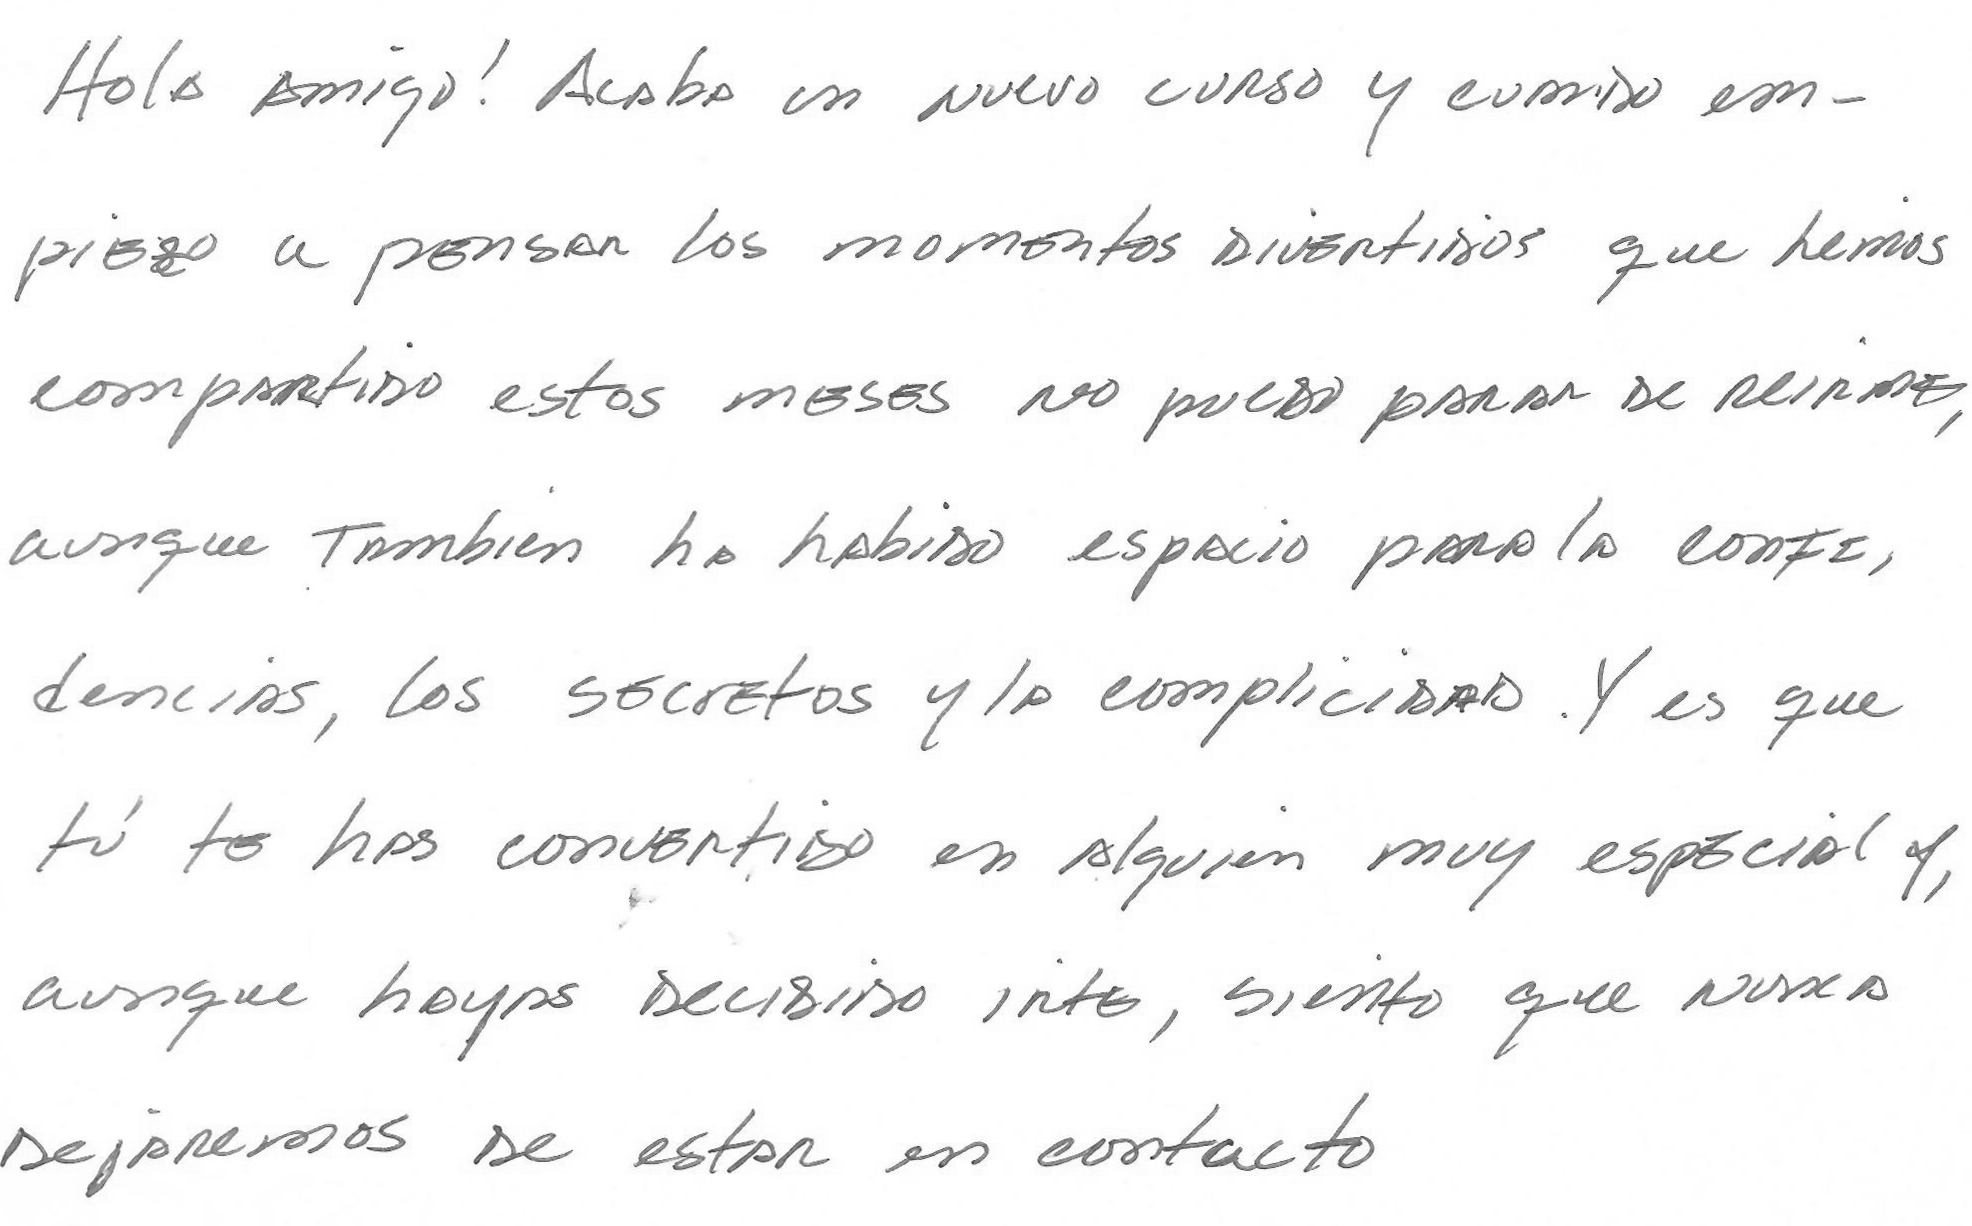 Hola amigo! Acaba un nuevo curso y cuando em-
piezo a pensar los momentos divertidos que hemos
compartido estos meses no puedo parar de reirme,
aunque Tambien ha habido espacio para la confi,
dencias, los secretos y la complicidad. Y es que
tú te has convertido en alguien muy especial y,
aunque hayas decidido irte, siento que nunca
dejaremos de estar en contacto